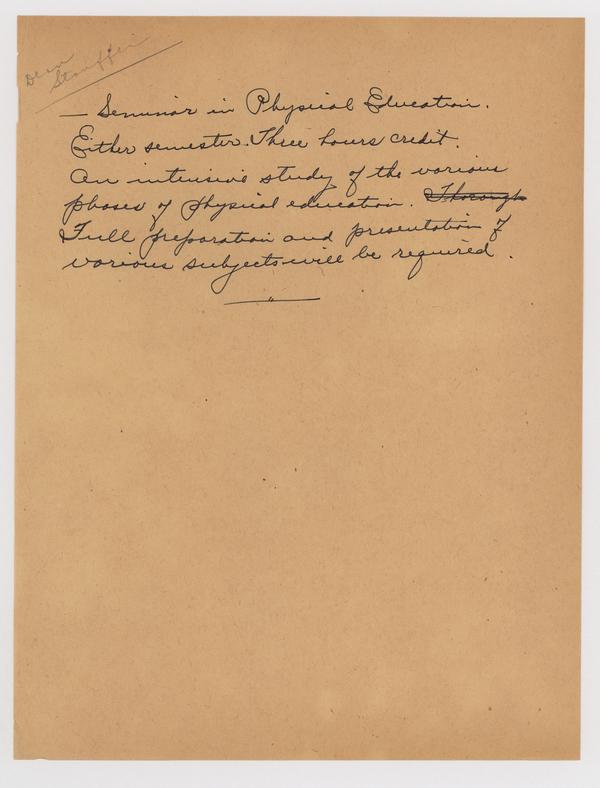 Dean
Stouffer
— Seminar in Physical Education.
Either semester. Three hours credit.
An intensive study of the various
phases of physical education. Thorough
Full preparation and presentation of
various subjects will be required.